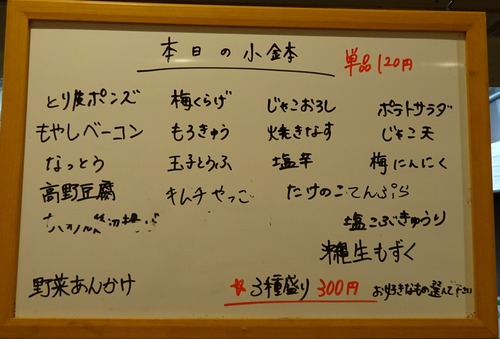 本日の小鉢
単品120円
とり皮ポンズ 梅くらげ じゃこおろし ポテトサラダ
もやしベーコン もろきゅう 焼きなす じゃこ天
なっとう 玉子とうふ 塩辛 梅にんにく
高野豆腐 キムチやっこ たけのこてんぷら
塩こぶきゅうり
沖縄生もずく
野菜あんかけ ★3種盛り 300円 お好きなもの選んで下さい